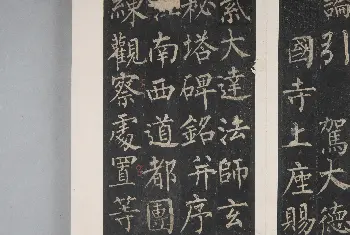 引駕大德
論國寺上座賜
紫大達法師玄
秘塔碑銘并序
南西道都團
練觀察處置等